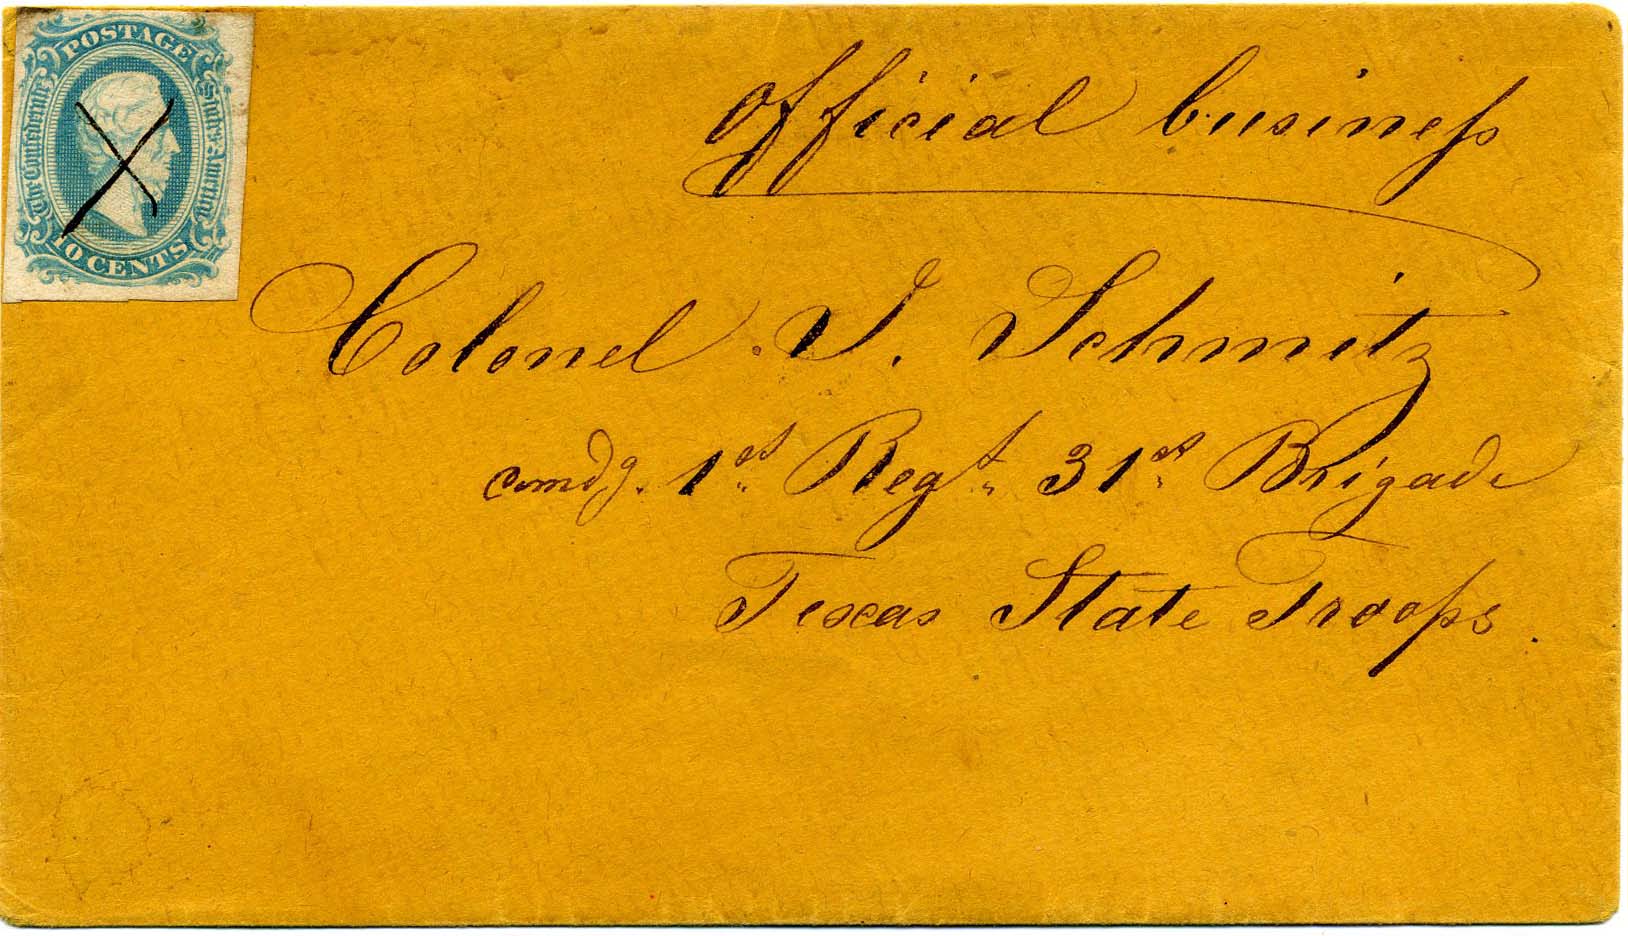 POSTAGE
The Confederate States America
10 CENTS
Official business
Colonel J. Schmitz
comdg. 1st Regt. 31st Brigade
Texas State Troops.